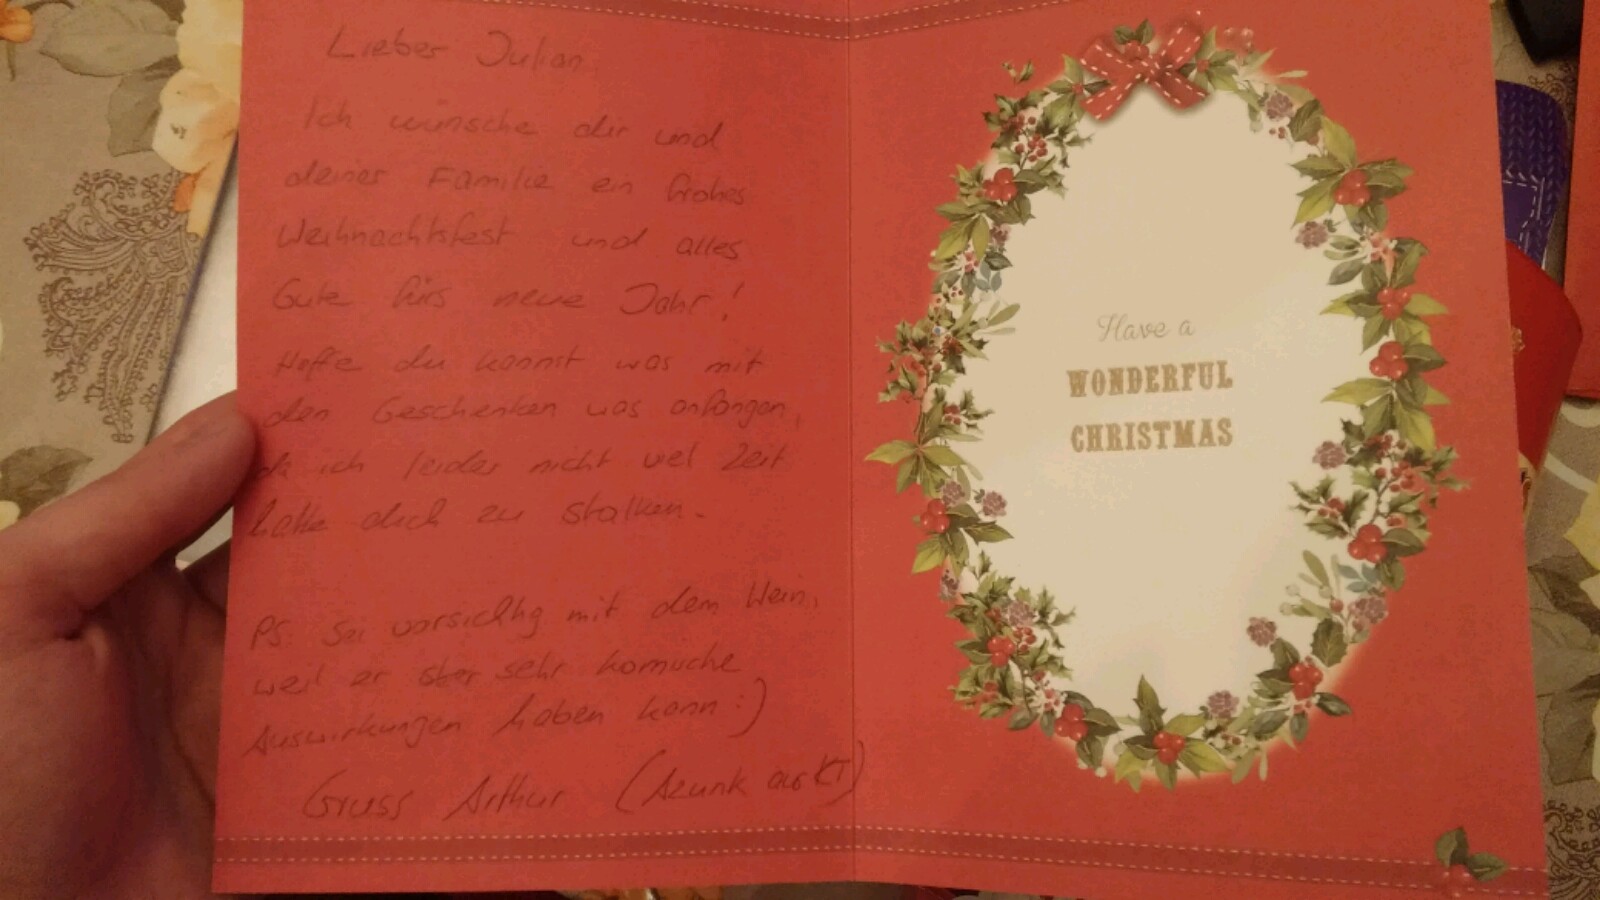 Lieber Julian
Ich wünsche dir und
deiner Familie ein frohes
Weihnachtsfest und alles
Gute fürs neue Jahr!
Hoffe du kannst was mit
den Geschenken was anfangen,
da ich leider nicht viel Zeit
hatte dich zu stalken.
PS. Sei vorsichtig mit dem Wein,
weil er sehr komische
Auswirkungen haben kann :)
Gruss Arthur (Azunk aus KT)
Have a
WONDERFUL
CHRISTMAS